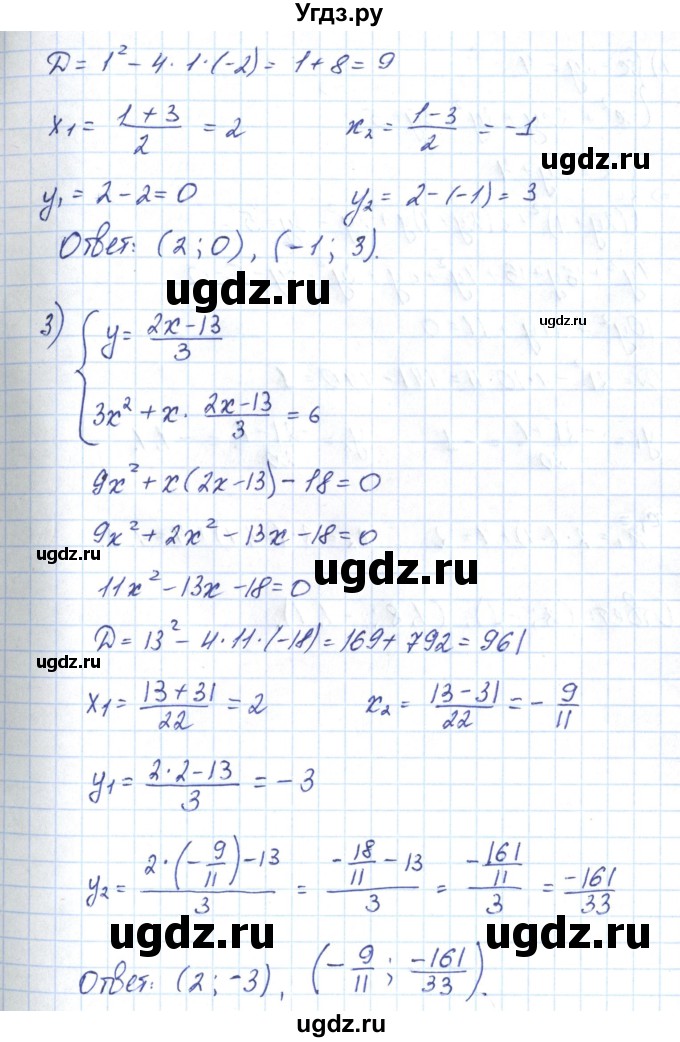 Угдз.ру
D = 1² - 4 · 1 · (-2) = 1 + 8 = 9
x₁ = (1 + 3)/2 = 2    x₂ = (1 - 3)/2 = -1
ugdz.ru
y₁ = 2 - 2 = 0    y₂ = 2 - (-1) = 3
Ответ: (2; 0), (-1; 3).
ugdz.ru
ugdz.ru
3) { y = (2x - 13)/3
3x² + x · (2x - 13)/3 = 6
9x² + x(2x - 13) - 18 = 0
9x² + 2x² - 13x - 18 = 0
ugdz.ru
ugdz.ru
11x² - 13x - 18 = 0
D = 13² - 4 · 11 · (-18) = 169 + 792 = 961
x₁ = (13 + 31)/22 = 2    x₂ = (13 - 31)/22 = - 9/11
y₁ = (2 · 2 - 13)/3 = -3
y₂ = (2 · (-9/11) - 13)/3 = (-18/11 - 13)/3 = (-161/11)/3 = -161/33
ugdz.ru
ugdz.ru
Ответ: (2; -3), (-9/11; -161/33).
ugdz.ru